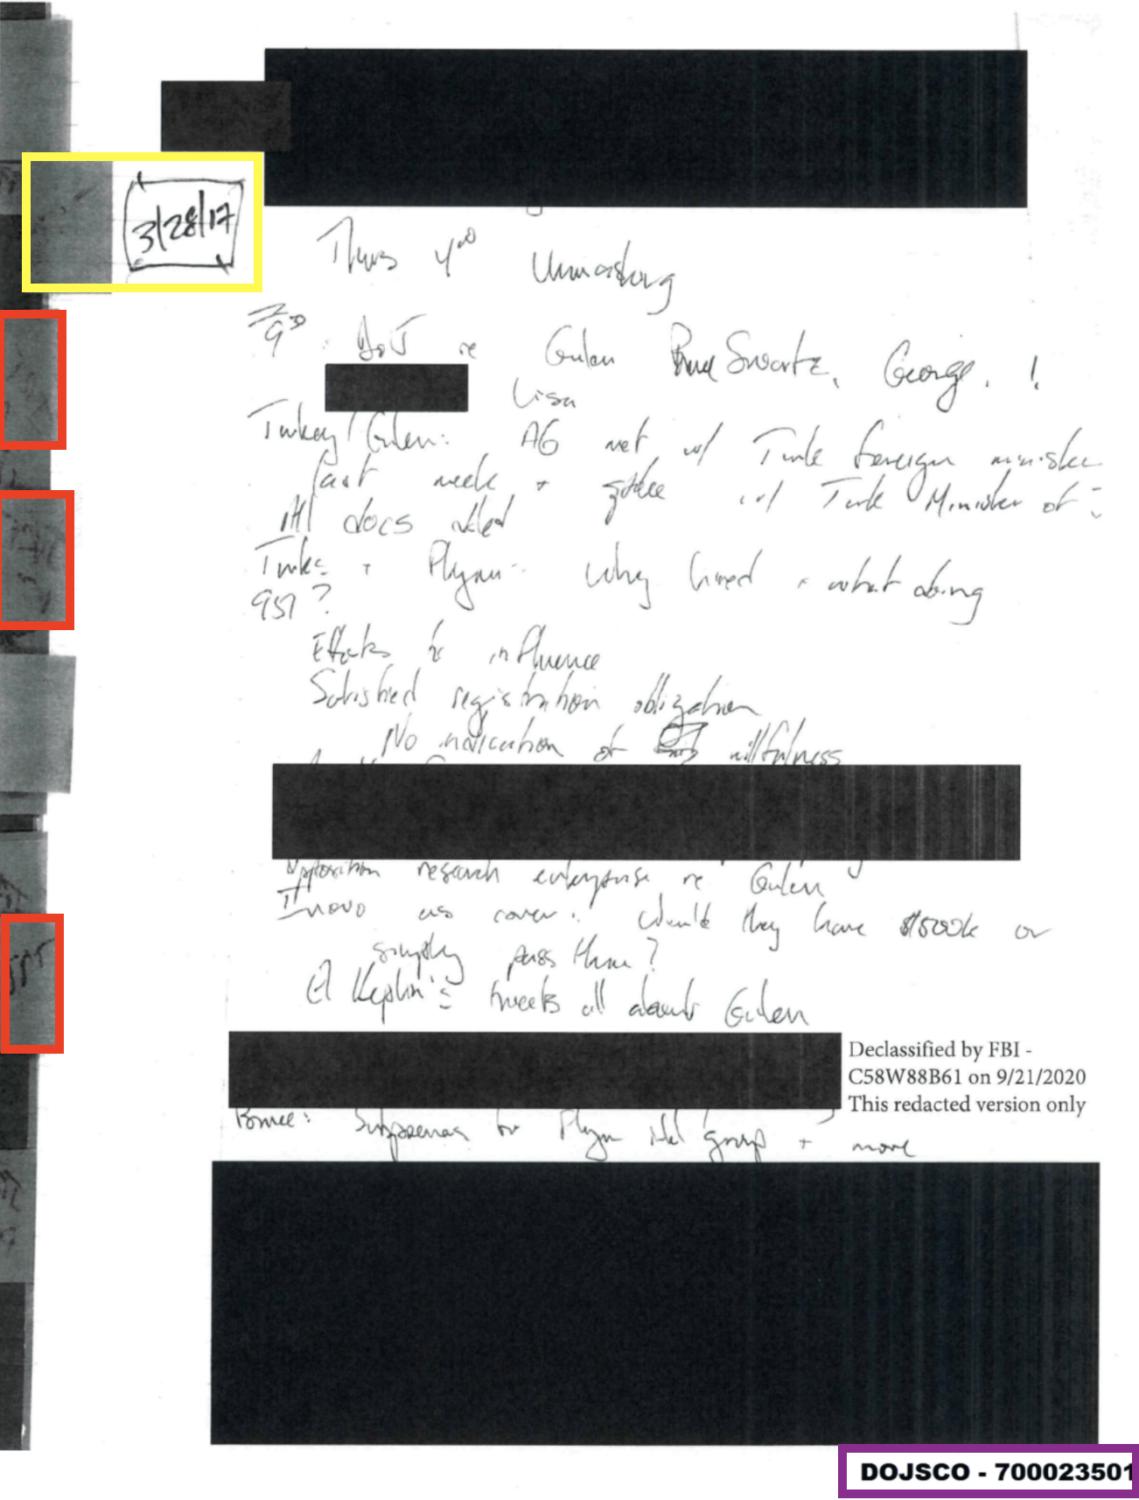 3/28/17
Thurs 4⁰⁰ Unmasking
9³⁰ DOJ re Gulen Bruce Swartz, George, !
Lisa
Turkey/Gulen: AG met w/ Turk foreign minister
last week + w/ Turk Minister of
All docs
Turks + Flynn - Why hired + what doing
951?
Efforts to influence
Satisfied registration obligation
No indication of willfulness
Opposition research enterprise re Gulen
Inovo as cover. Would they have $500k or
simply pass thru?
tweets all about Gulen
Declassified by FBI -
C58W88B61 on 9/21/2020
This redacted version only
Bruce: Subpoenas for Flynn Intel group + more
DOJSCO - 700023501